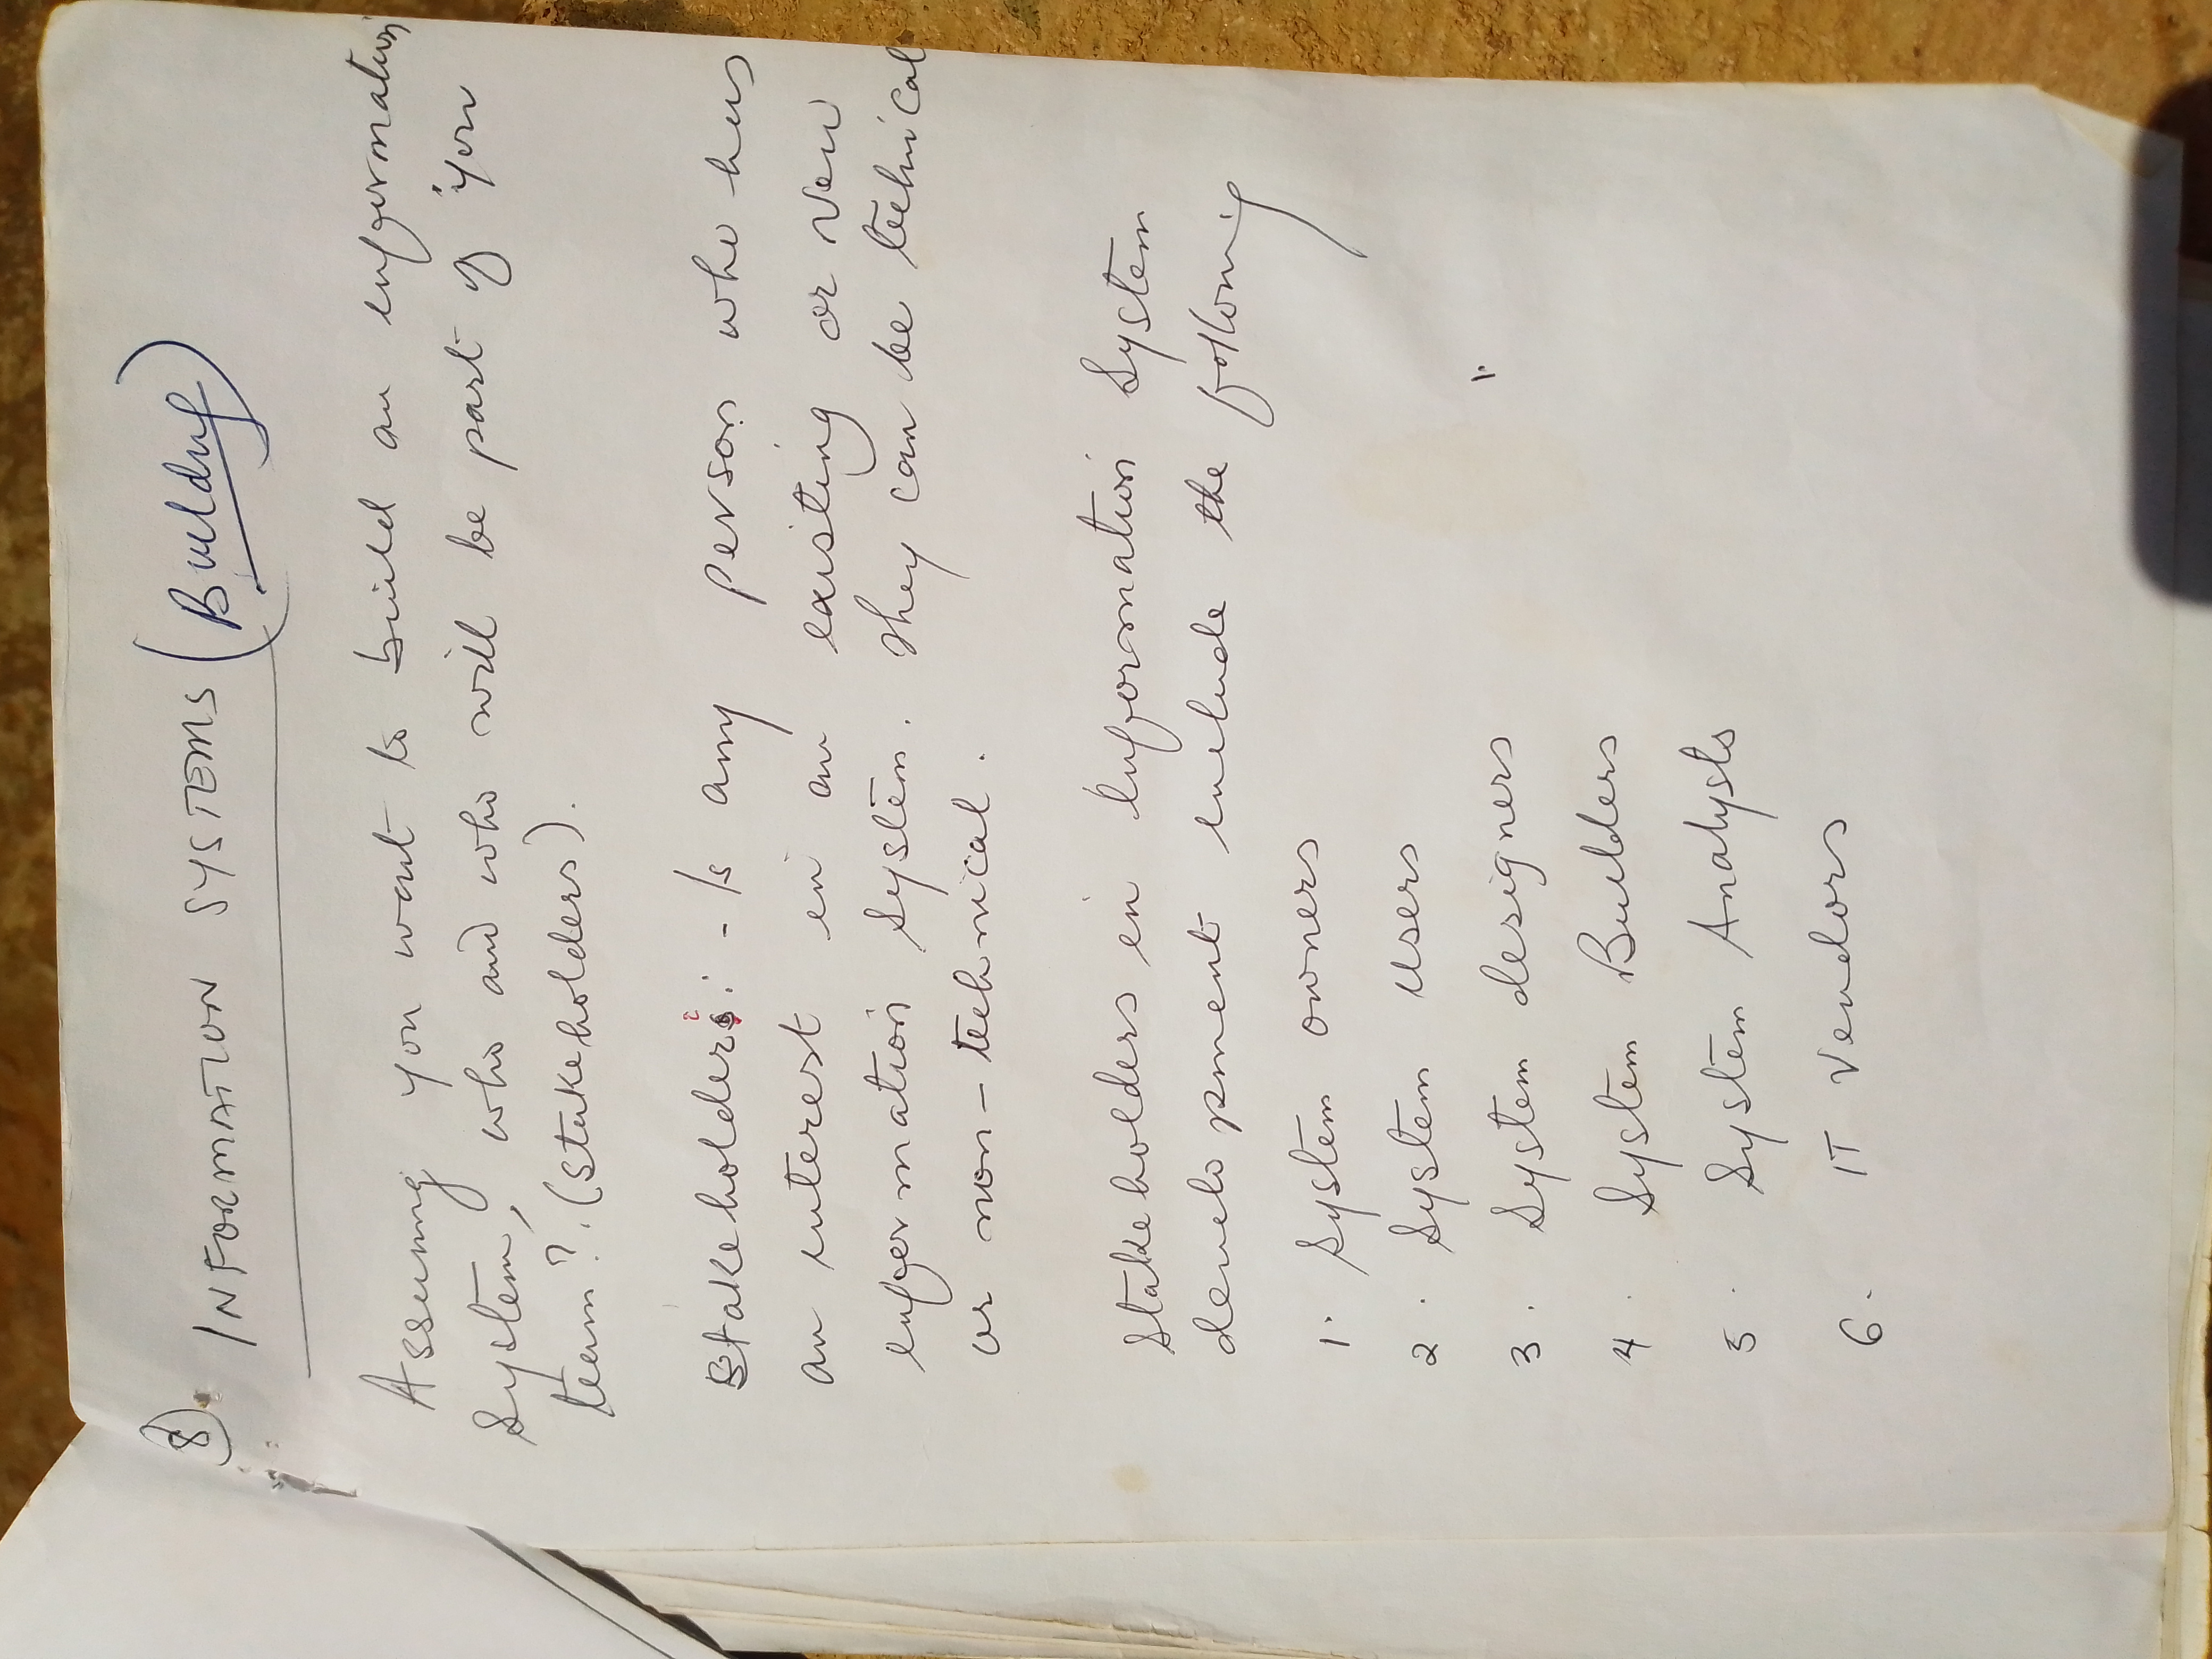 8. INFORMATION SYSTEMS (Building)
Assuming you want to build an information
System, who and who will be part of you
team? (stakeholders).
Stakeholders: - Is any person who has
an interest in an existing or new
information system. They can be technical
or non-technical.
Stakeholders in Information System
development include the following
1. System owners
2. System users
3. System designers
4. System Builders
5. System Analysts
6. IT Vendors